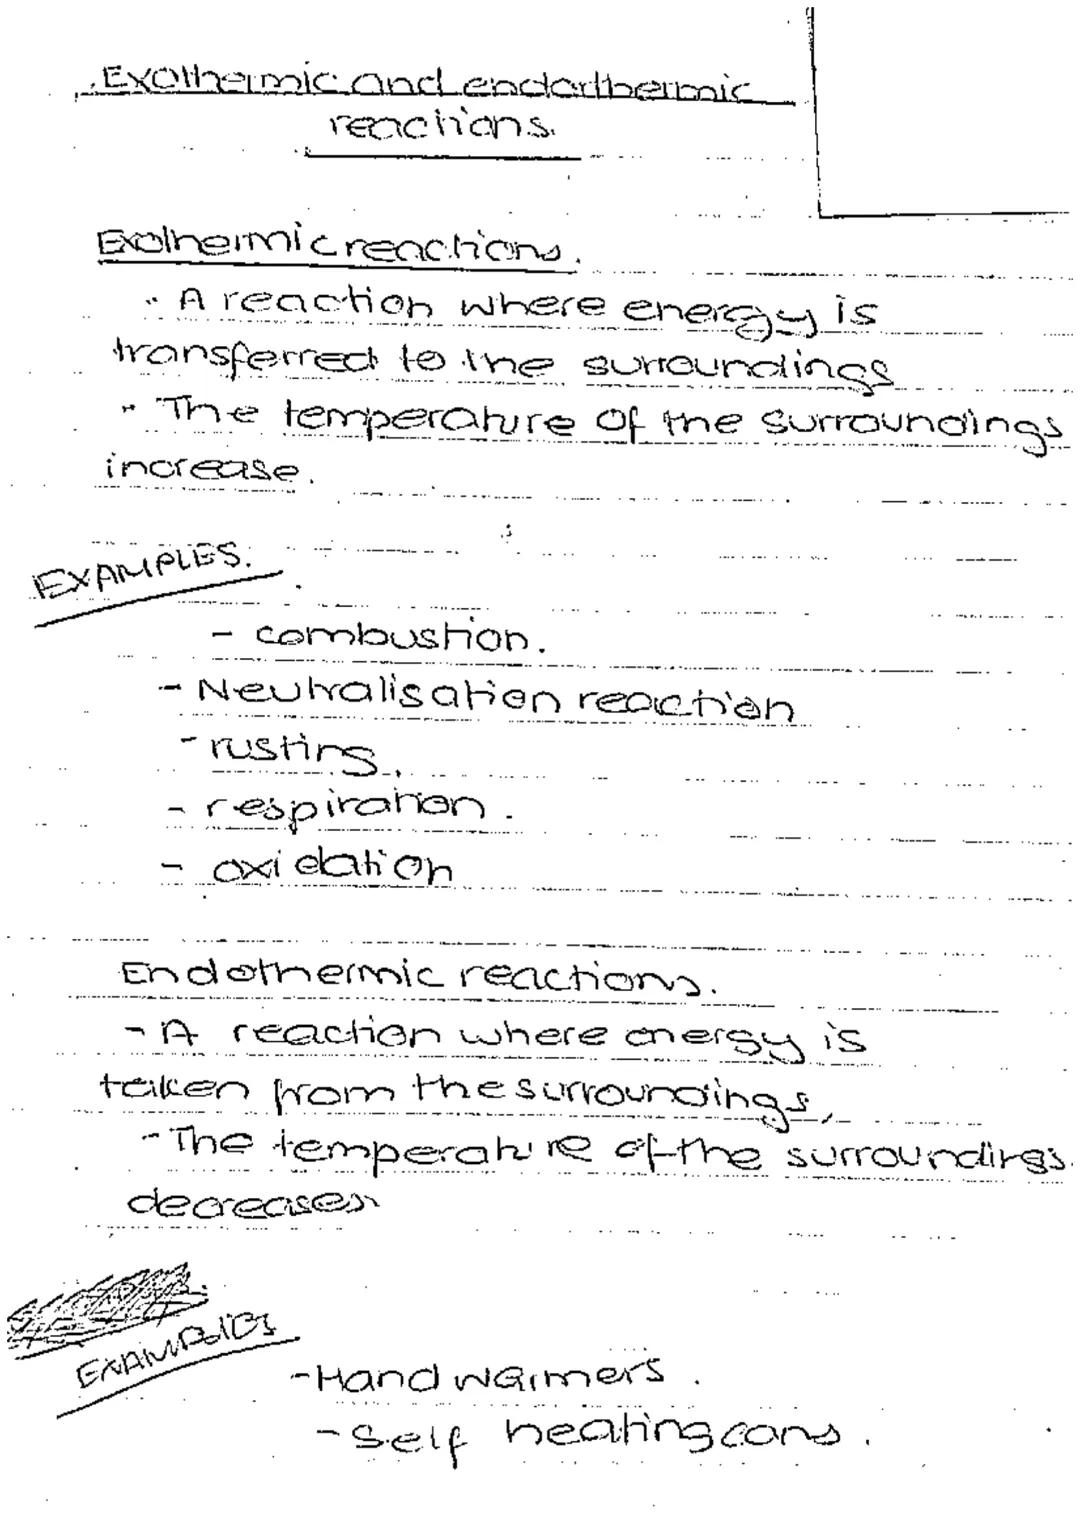 Exothermic and endorthermic
reactions.
Exothermic reactions.
· A reaction where energy is
transferred to the surroundings
· The temperature of the surroundings
increase.
EXAMPLES.
- combustion.
- Neutralisation reaction
- rusting.
- respiration.
- oxidation
Endothermic reactions.
- A reaction where energy is
taken from the surroundings,
- The temperature of the surroundings.
decreases
EXAMPLES
- Hand warmers.
- Self heating cans.